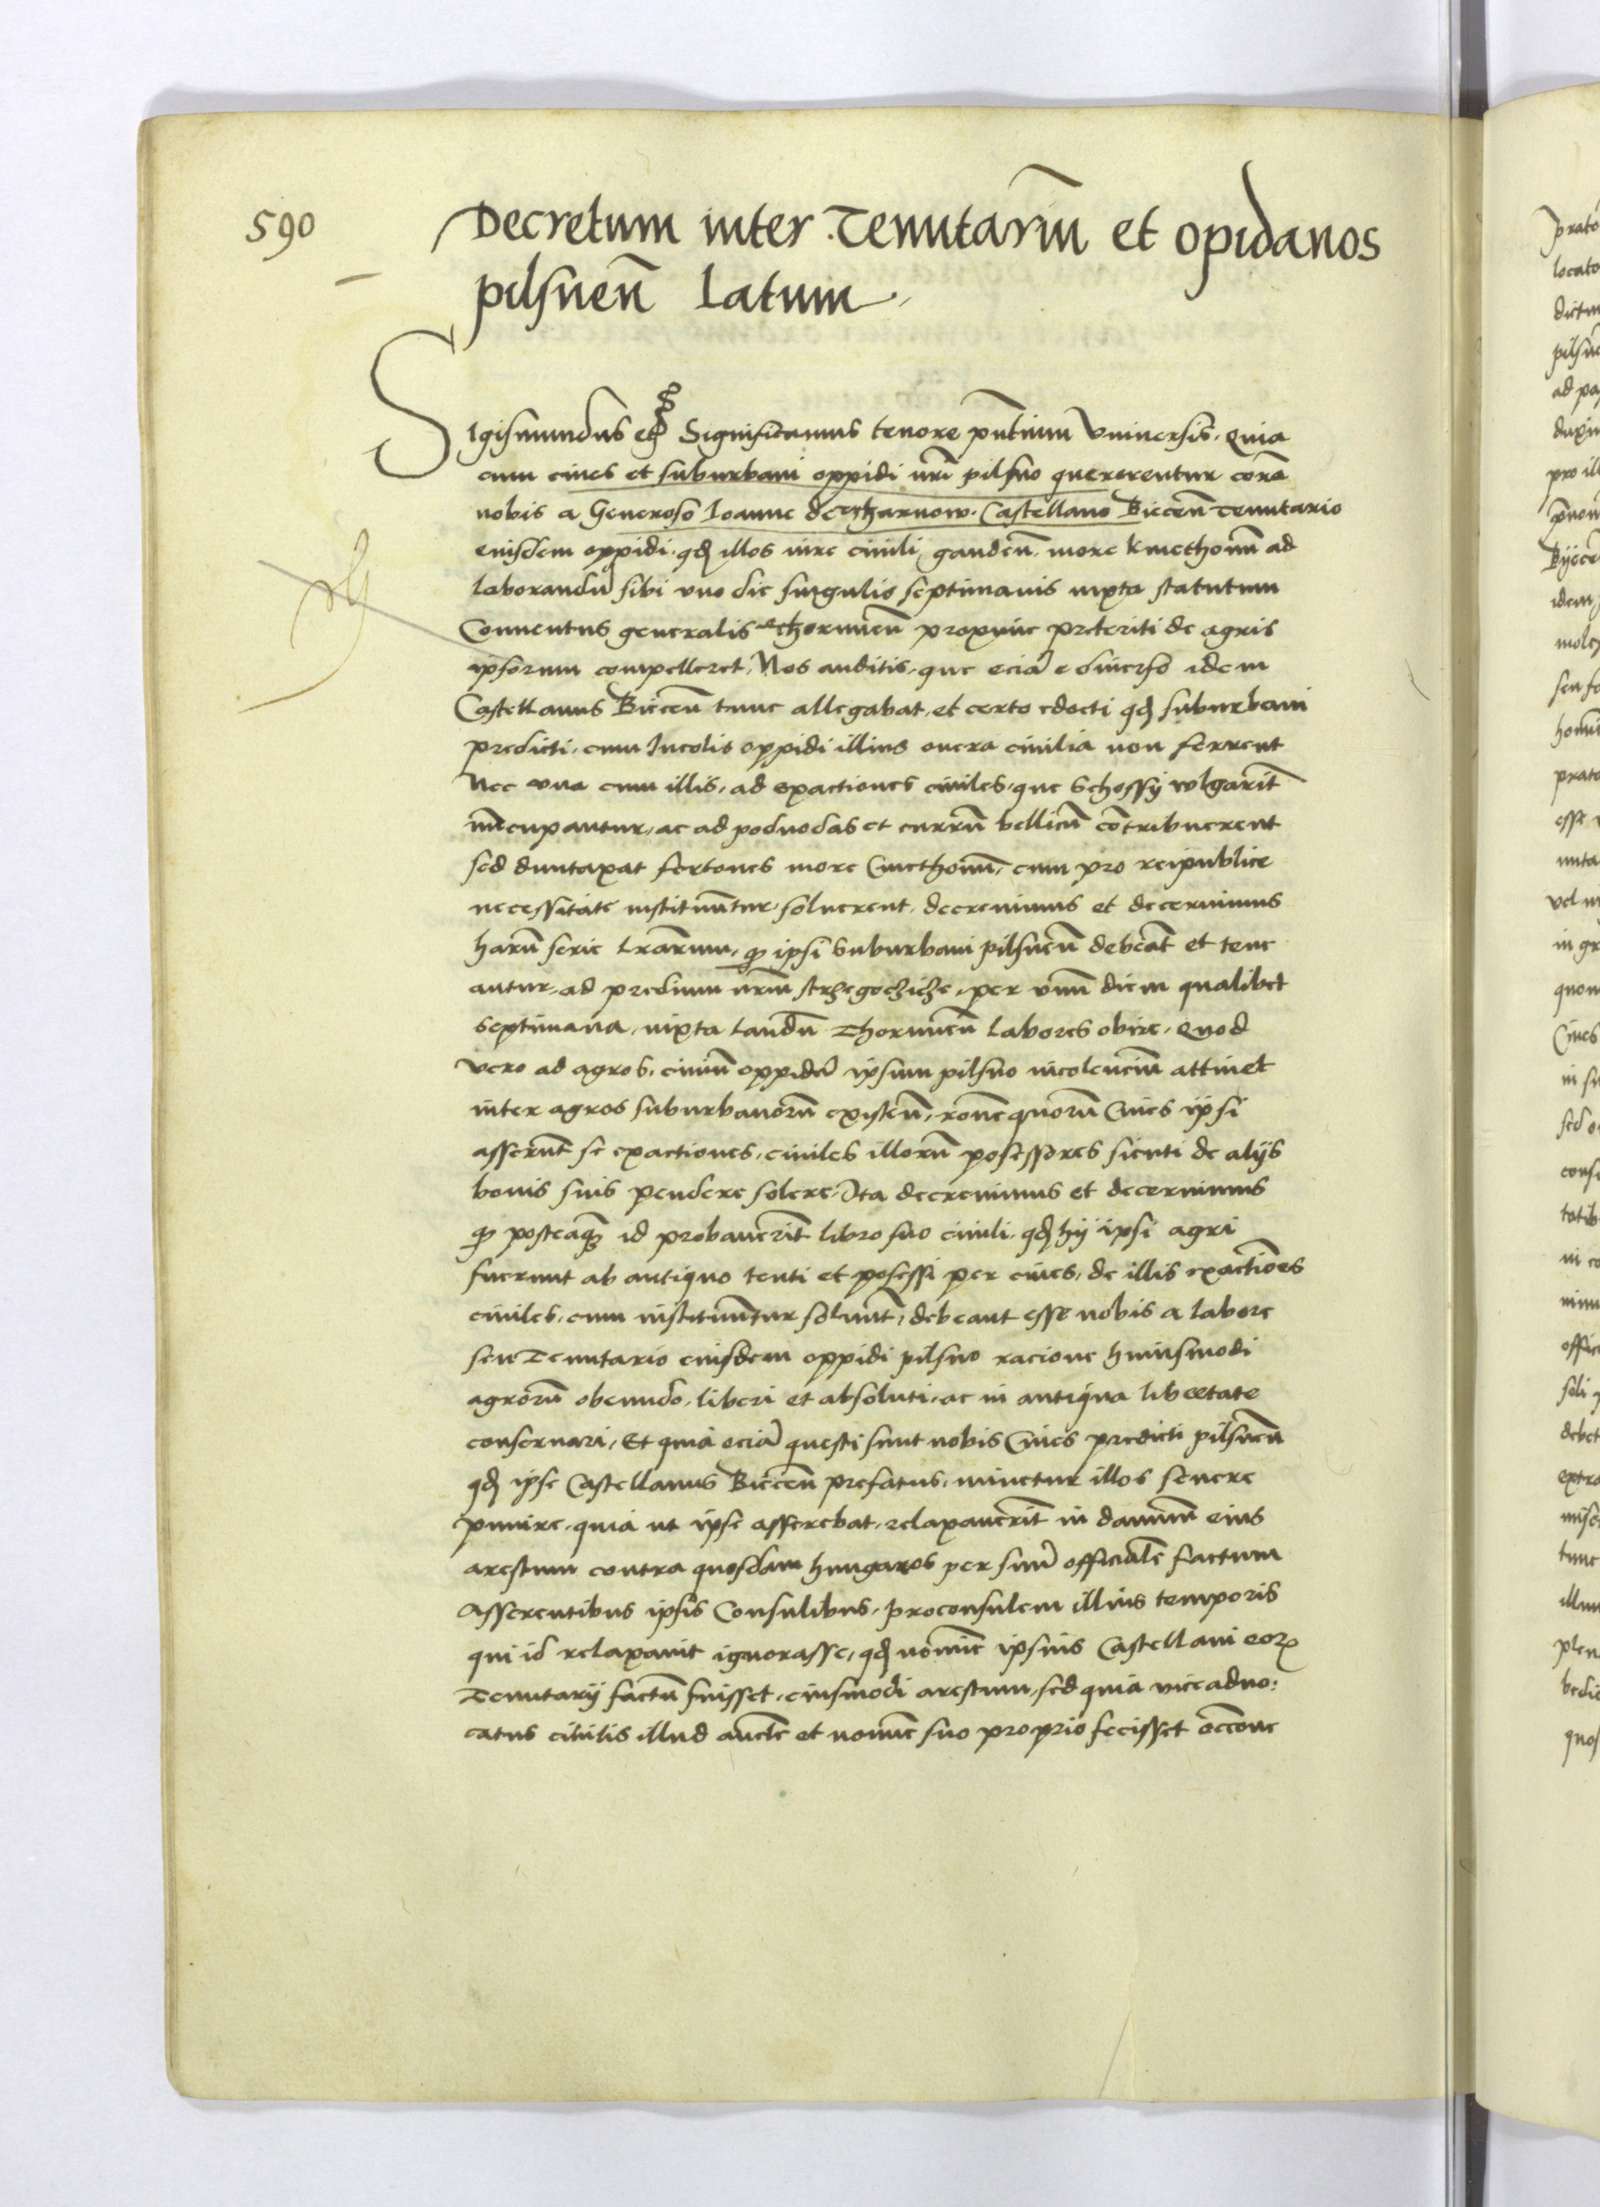 590
Decretum inter Tenutariũ et opidanos
pilsneñ Latum
Sigismundus etc Significamus tenore pñtium Vniuersis, Quia
cum ciues et suburbani oppidi nr̃i pilsno quererentur corã
nobis a Generoso Ioanne de Tharnow Castellano Bieceñ Tenutario
eiusdem oppidi, qđ illos iure ciuili gaudeñ more kmethonũ ad
laborandũ sibi vno die singulis septimanis iuxta statutum
Conuentus generalis Thoruneñ proxime preteriti de agris
ipsorum compelleret, Nos auditis, que eciã e diuerso idem
Castellanus Bieceñ tunc allegabat, et certo edocti qđ suburbani
predicti, cum Incolis oppidi illius onera ciuilia non ferrent
Nec vna cum illis, ad exactiones ciuiles, que Schossy wlgarit̃
nũcupantur, ac ad poduodas et currũ bellicũ cõtribuerent
sed duntaxat fertones more Cmethonũ, cum pro reipublice
necessitate instituũtur, soluerent, decreuimus et decernimus
harũ serie lr̃arum, qz ipsi Suburbani pilsneñ debeãt et tene
antur, ad predium nr̃m strzegocziche, per vnũ diem qualibet
Septimana, iuxta Laudũ Thoruneñ Labores obire, Quod
vero ad agros, ciuiũ oppidũ ipsum pilsno incolenciũ attinet
inter agros suburbanorũ existeñ, rõne quorũ Ciues ipsi
asserũt se exactiones, ciuiles illorũ possessores sicuti de alijs
bonis suis pendere solere, Ita decreuimus et decernimus
qz posteaq̃ id probauerĩt libro suo ciuili, qđ hij ipsi agri
fuerunt ab antiquo tenti et possessi per ciues, de illis exactiões
ciuiles, cum instituũtur soluũt, debeant esse nobis a labore
seu Tenutario eiusdem oppidi pilsno racione huiusmodi
agrorũ obeundo, liberi et absoluti, ac in antiqua libertate
conseruari, Et quia eciã questi sunt nobis Ciues predicti pilsneñ
qđ ipse Castellanus Bieceñ prefatus, minetur illos seuere
punire, quia ut ipse asserebat, relaxauerĩt in damnũ eius
arestum contra quosdam hungaros per suũ officialẽ factum
Asserentibus ipsis Consulibus, Proconsulem illius temporis
qui id relaxauit ignorasse, qđ nom̃ie ipsius Castellani eorz
Tenutarij factũ fuisset, eiusmodi arestum, sed quia viceaduo:
catus ciuilis illud auc̃te et nom̃ie suo proprio fecisset occõne